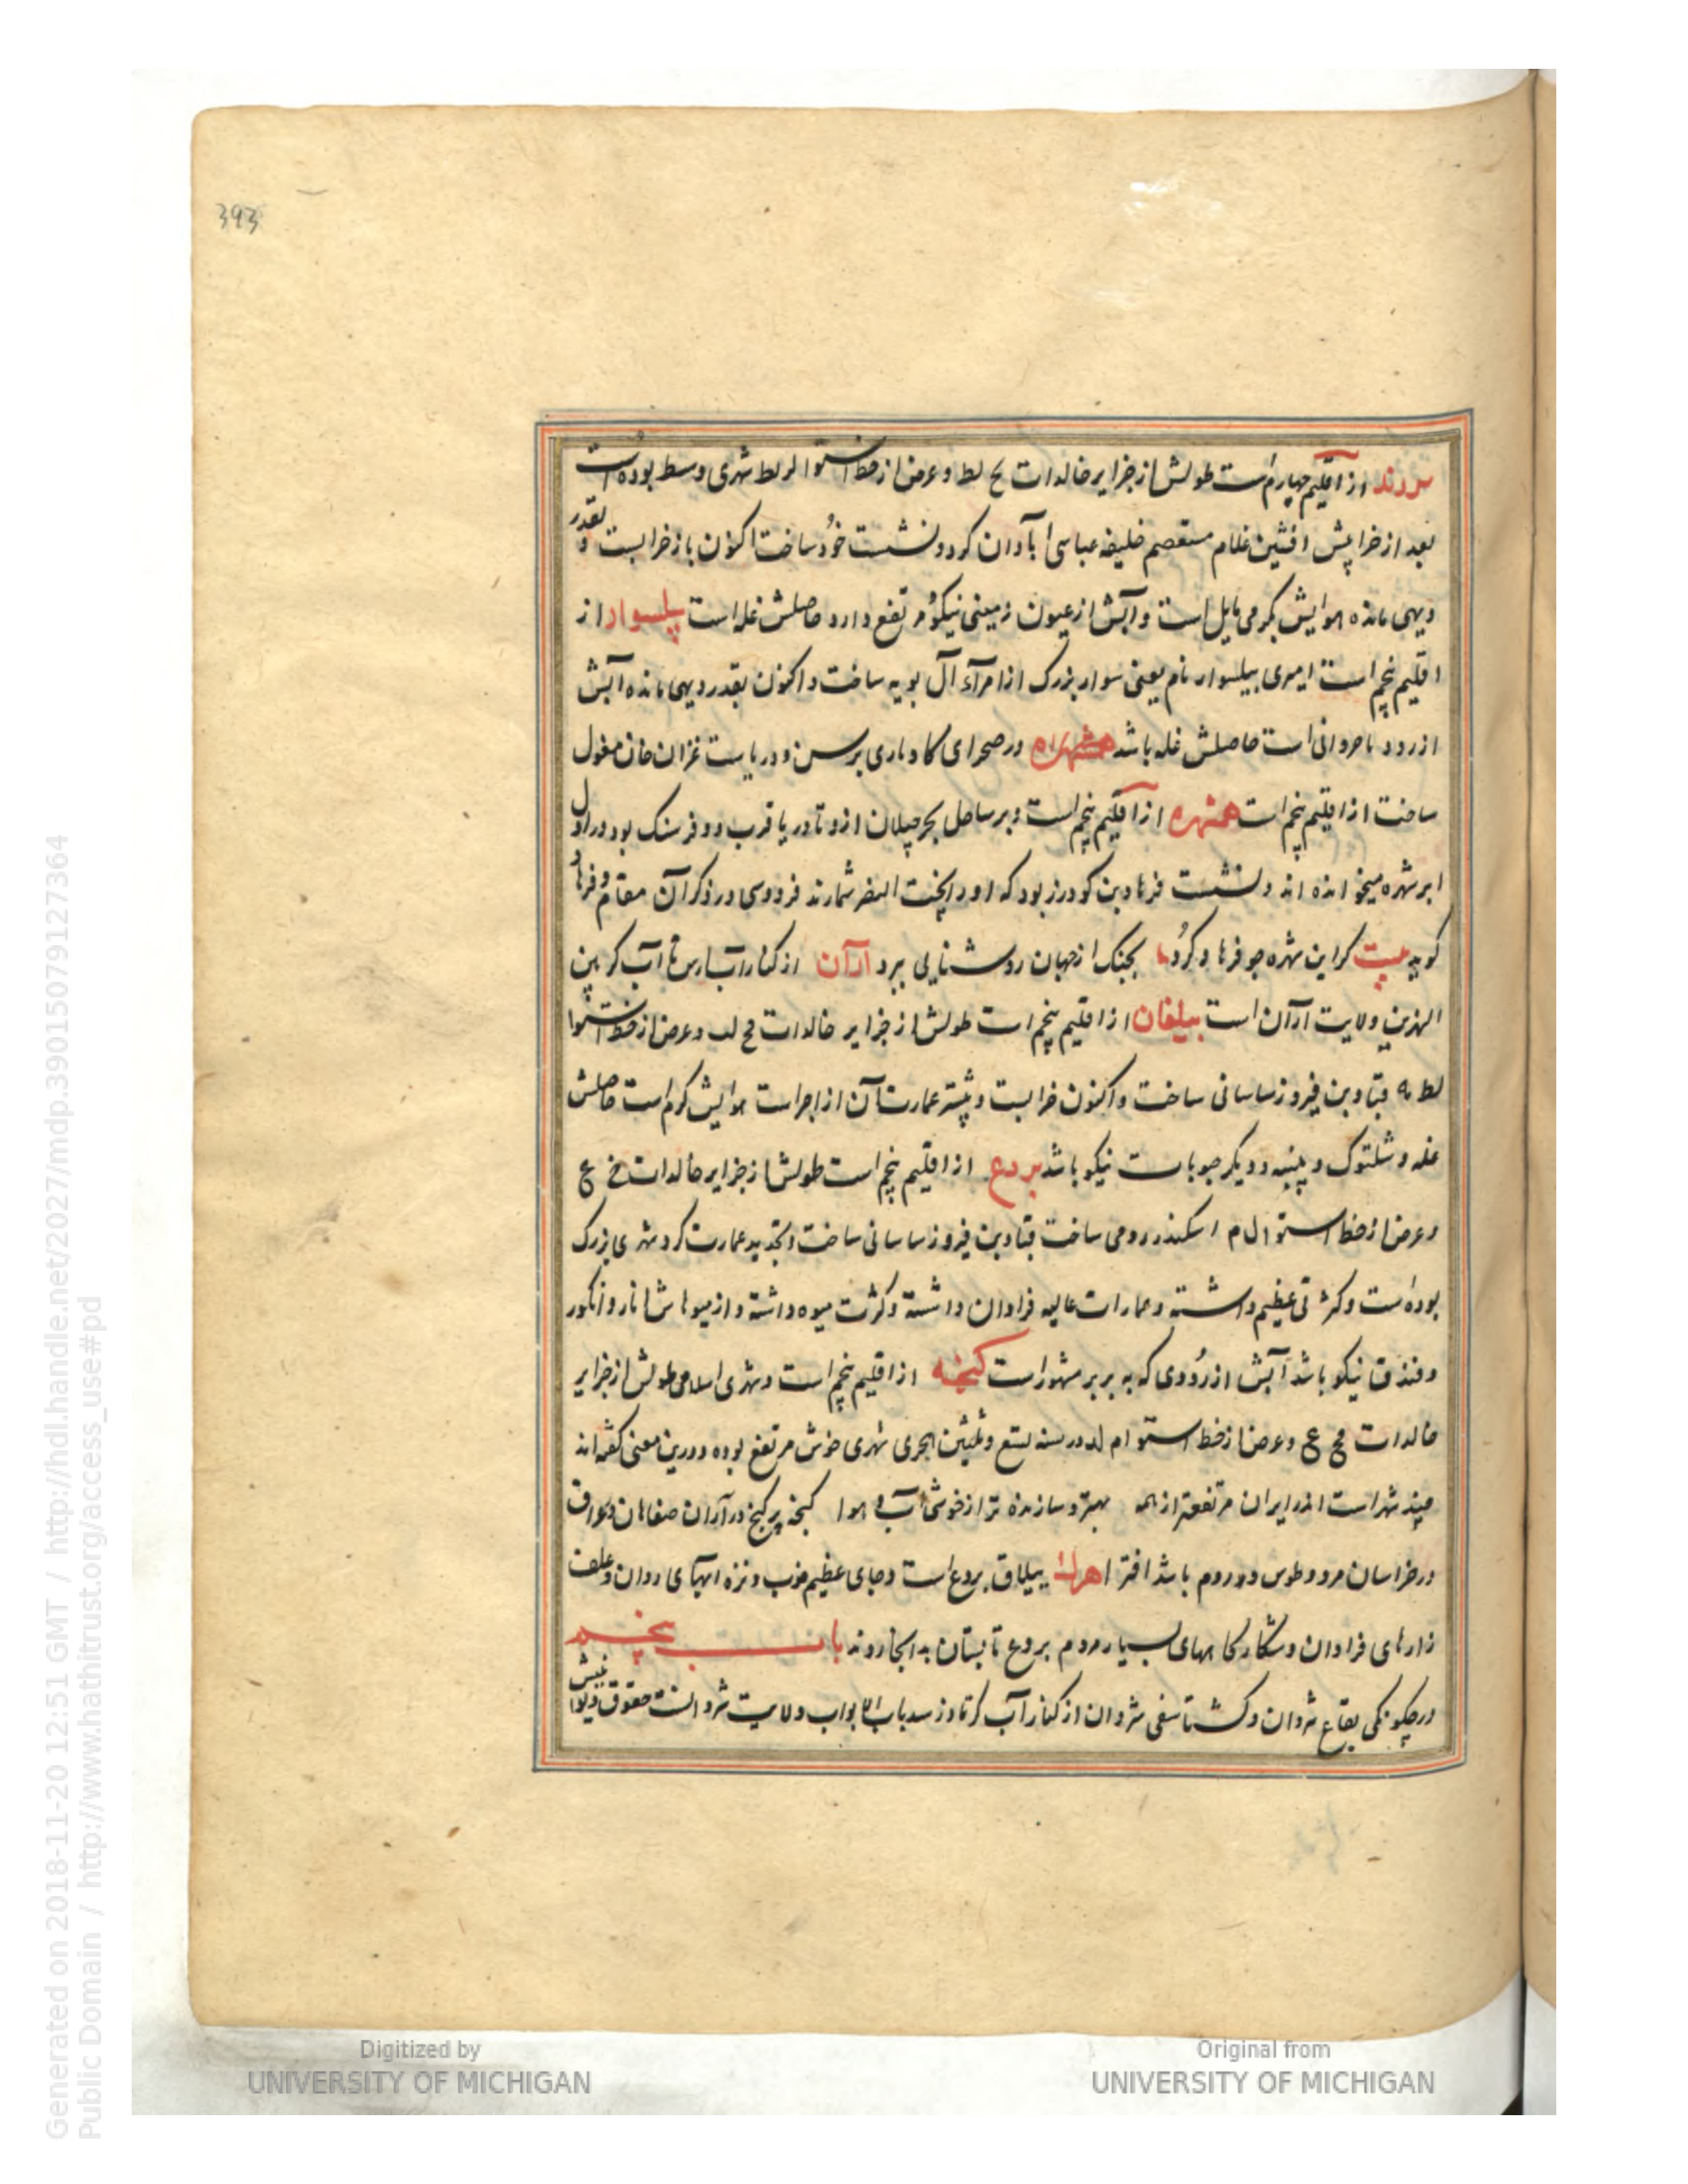 393
برزند از اقلیم چهارم است طولش از جزایر خالدات ع لط و عرض از خط استوا لر لط شهری وسط بوده است
بعد از خرابیش افشین غلام معتصم خلیفه عباسی آبادان کرد و نشست خُود ساخت اکنون باز خرابست و بقدر
دیهی مانده هوایش بکرمی مایل است و آبش از عیون زمینی نیکو مرتفع دارد حاصلش غله است پلسوار از
اقلیم پنجم است امیری بیلسوار نام یعنی سوار بزرک از امرآء آل بویه ساخت و اکنون بقدر دیهی مانده آبش
از رود باجروانی است حاصلش غله باشد در صحرای کاوباری برسن و دریاست غزان خان مغول
ساخت از اقلیم پنجم است همشهره از اقلیم پنجم است و بر ساحل بحر جیلان ازو تا دریا قرب دو فرسنک بود در اول
ابرشهره میخوانده اند و نشست فرهاد بن کودرز بود که او را بخت النصر شمارند فردوسی در ذکر آن مقام و فرهاد
کوید بیت کراین شهره جو فرهاد کرُدما بجنک از جهان روشنایی ببرد آرآن از کنار آب ارس تا آب کر بین
النهرین ولایت آرآن است بیلقان از اقلیم پنجم است طولش از جزایر خالدات مح لب و عرض از خط استوا
لط نه قباد بن فیروز ساسانی ساخت و اکنون خرابست و بیشتر عمارت آن از اجر است هوایش کرم است حاصلش
غله و شلتوک و پنبه و دیکر حبوبات نیکو باشد بردع از اقلیم پنجم است طولش از جزایر خالدات ع
و عرض از خط استوا ل م اسکندر رومی ساخت قباد بن فیروز ساسانی ساخت و تجدید عمارت کرد شهری بزرک
بوده است و کثرتی عظیم داشته و عمارات عالیه فراوان داشته و کثرت میوه داشته و از میوهاش انار و انکور
و فندق نیکو باشد آبش از رُودی که به بربر مشهور است کنجه از اقلیم پنجم است و شهری اسلامی طولش از جزایر
خالدات مح ع و عرض از خط استوا م لد در سنه تسع و ثلثین هجری شهری خوش مرتفع بوده و درین معنی کفته اند
چند شهر است اندر ایران مرتفعتر از همه بهتر و سازنده تر از خوشی آب و هوا کنجه پر کنج در آران صفاهان در عراق
در خراسان مرو و طوس و در روم باشد اقسرا هرک ییلاق بردع است و جای عظیم خوب و نزه آبهای روان و علف
زارهای فراوان و شکارکاههای بسیار مردم بردع تابستان بدانجا روند باب پنجم
در چکونکی بقاع شروان و کشتاسفی شروان از کنار آب کر تا دربند باب الابواب ولایت شروانست حقوق دیوانیش
Digitized by
UNIVERSITY OF MICHIGAN
Original from
UNIVERSITY OF MICHIGAN
Generated on 2018-11-20 12:51 GMT / http://hdl.handle.net/2027/mdp.39015079127364
Public Domain / http://www.hathitrust.org/access_use#pd